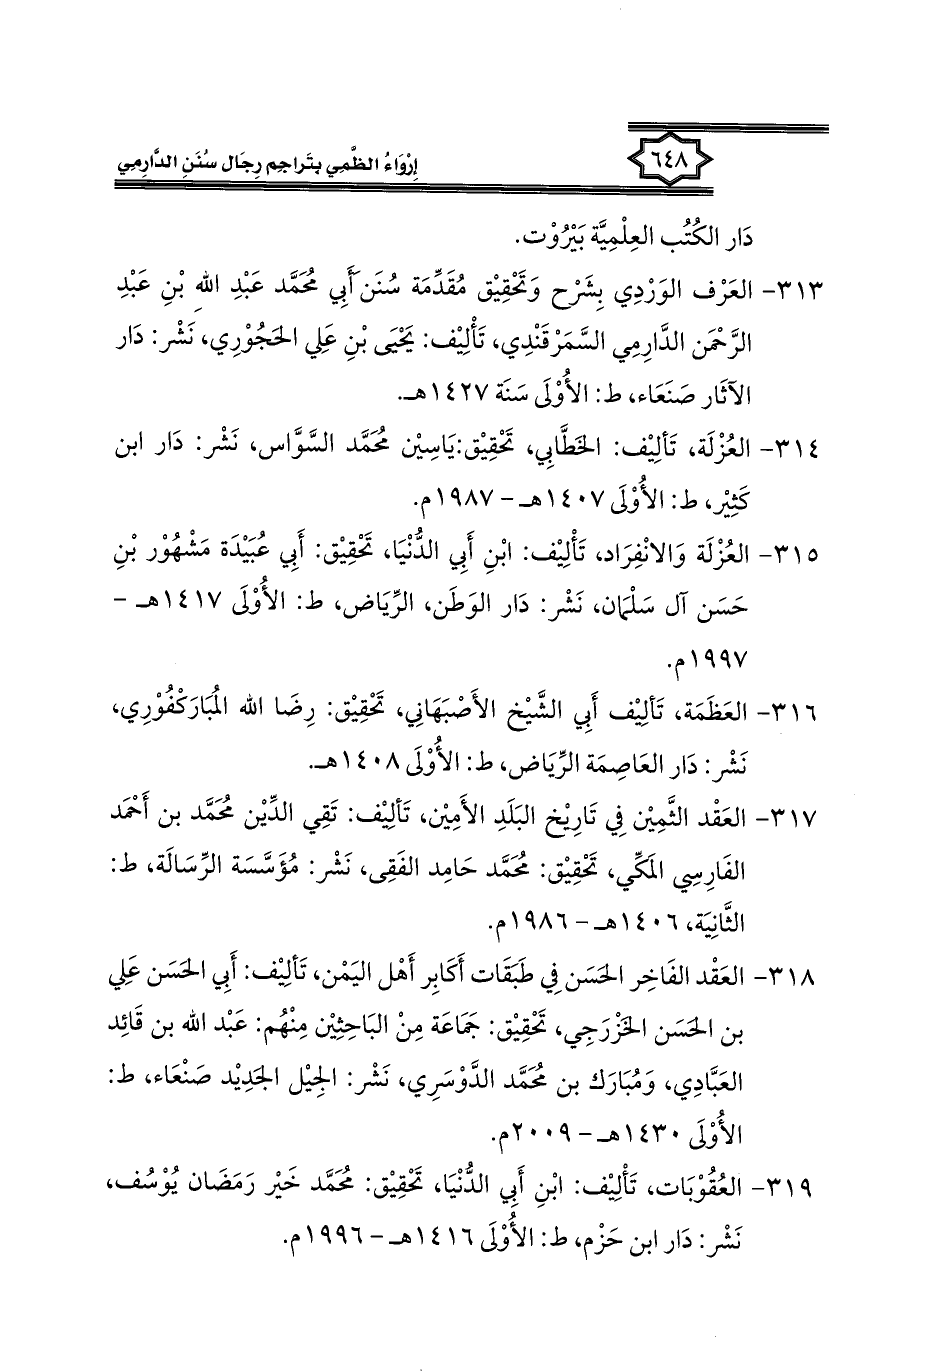 ٦٤٨
إِرْوَاءُ الظَّمِي بِتَراجم رِجَال سُنَنِ الدَّارِمِي
دَار الكُتُب العِلْمِيَّة بَيْرُوْت.
٣١٣- العَرْف الوَرْدِي بِشَرْح وَتَحْقِيْق مُقَدِّمَة سُنَن أَبِي مُحَمَّد عَبْدِ اللهِ بْنِ عَبْدِ
الرَّحْمَن الدَّارِمِي السَّمَرْقَنْدِي، تَأْلِيْف: يَحْيَى بْنِ عَلِي الحَجُوْرِي، نَشْر: دَار
الآثَار صَنَعَاء، ط: الأُوْلَى سَنَة ١٤٢٧هـ.
٣١٤- العُزْلَة، تَألِيْف: الخَطَّابِي، تَحْقِيْق:يَاسِيْن مُحَمَّد السَّوَّاس، نَشْر: دَار ابن
كَثِيْر، ط: الأُوْلَى ١٤٠٧هـ - ١٩٨٧م.
٣١٥- العُزْلَة وَالانْفِرَاد، تَأْلِيْف: ابْنِ أَبِي الدُّنْيَا، تَحْقِيْق: أَبِي عُبَيْدَة مَشْهُوْر بْنِ
حَسَن آل سَلْمَان، نَشْر: دَار الوَطَن، الرِّيَاض، ط: الأُوْلَى ١٤١٧هـ -
١٩٩٧م.
٣١٦- العَظَمَة، تَأْلِيْف أَبِي الشَّيْخ الأَصْبَهَاني، تَحْقِيْق: رِضَا الله المُبَارَكْفُوْرِي،
نَشْر: دَار العَاصِمَة الرِّيَاض، ط: الأُوْلَى ١٤٠٨هـ.
٣١٧- العَقْد الثَّمِيْن فِي تَارِيْخ البَلَدِ الأَمِيْن، تَألِيْف: تَقِي الدِّيْن مُحَمَّد بن أَحْمَد
الفَارِسِي المَكِّي، تَحْقِيْق: مُحَمَّد حَامِد الفَقِى، نَشْر: مُؤَسَّسَة الرِّسَالَة، ط:
الثَّانِيَة، ١٤٠٦هـ - ١٩٨٦م.
٣١٨- العَقْد الفَاخِر الحَسَن فِي طَبَقَات أَكَابِر أَهْل اليَمْن، تَألِيْف: أَبِي الحَسَن عَلِي
بن الحَسَن الخَزْرَجِي، تَحْقِيْق: جَمَاعَة مِنْ البَاحِثِيْن مِنْهُم: عَبْد الله بن قَائِد
العَبَّادِي، وَمُبَارَك بن مُحَمَّد الدَّوْسَرِي، نَشْر: الجِيْل الجَدِيْد صَنْعَاء، ط:
الأُوْلَى ١٤٣٠هـ - ٢٠٠٩م.
٣١٩- العُقُوْبَات، تَأْلِيْف: ابْنِ أَبِي الدُّنْيَا، تَحْقِيْق: مُحَمَّد خَيْر رَمَضَان يُوْسُف،
نَشْر: دَار ابن حَزْم، ط: الأُوْلَى ١٤١٦هـ - ١٩٩٦م.